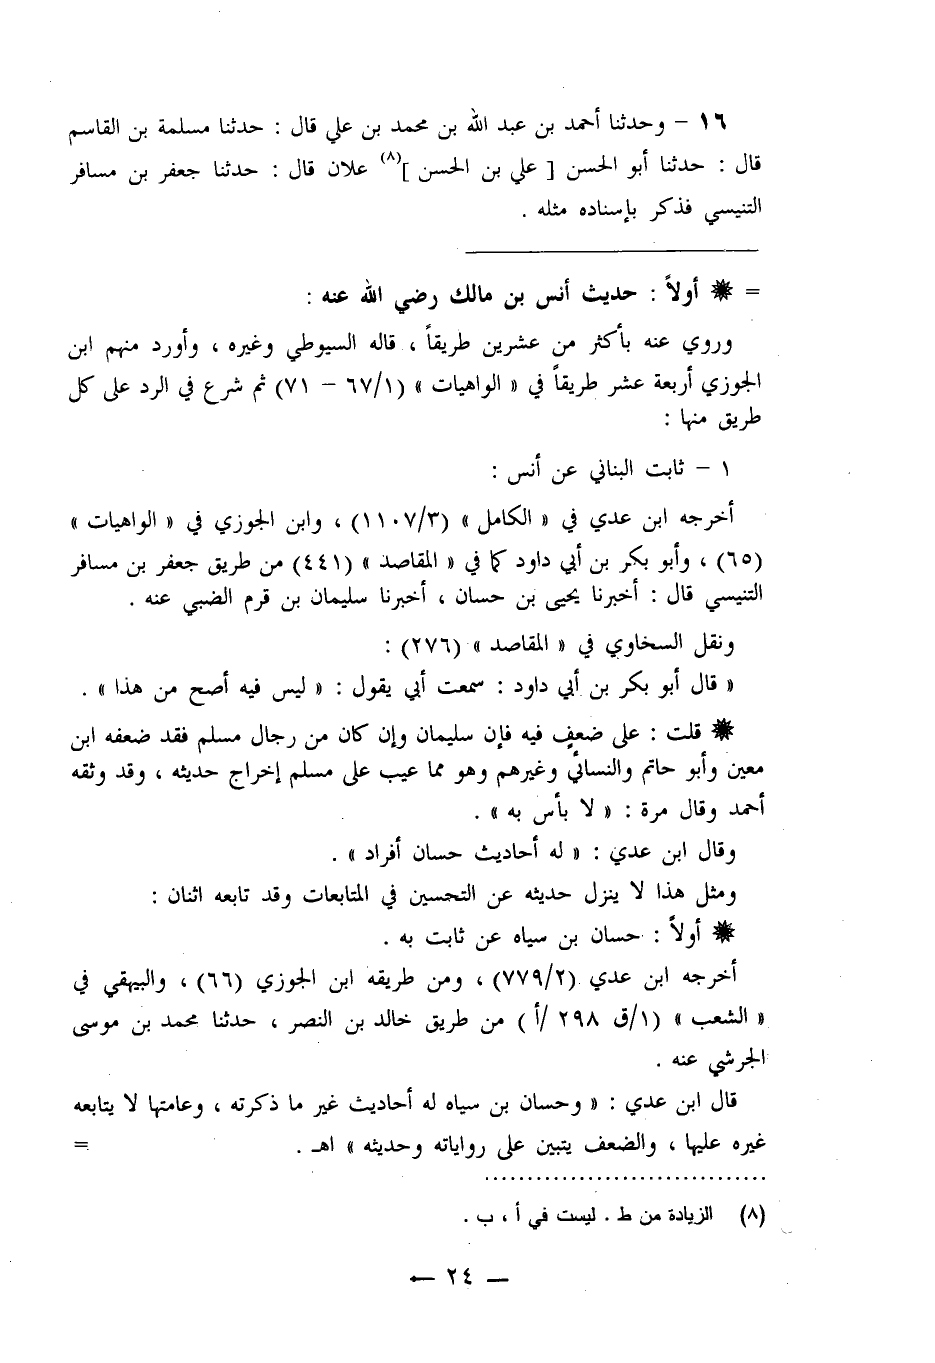 ١٦ – وحدثنا أحمد بن عبد الله بن محمد بن علي قال : حدثنا مسلمة بن القاسم
قال : حدثنا أبو الحسن [ علي بن الحسن ](٨) علان قال : حدثنا جعفر بن مسافر
التنيسي فذكر بإسناده مثله .
= ✺ أولاً : حديث أنس بن مالك رضي الله عنه :
وروي عنه بأكثر من عشرين طريقاً ، قاله السيوطي وغيره ، وأورد منهم ابن
الجوزي أربعة عشر طريقاً في « الواهيات » (٦٧/١ – ٧١) ثم شرع في الرد على كل
طريق منها :
١ – ثابت البناني عن أنس :
أخرجه ابن عدي في « الكامل » (١١٠٧/٣) ، وابن الجوزي في « الواهيات »
(٦٥) ، وأبو بكر بن أبي داود كما في « المقاصد » (٤٤١) من طريق جعفر بن مسافر
التنيسي قال : أخبرنا يحيى بن حسان ، أخبرنا سليمان بن قرم الضبي عنه .
ونقل السخاوي في « المقاصد » (٢٧٦) :
« قال أبو بكر بن أبي داود : سمعت أبي يقول : « ليس فيه أصح من هذا » .
✺ قلت : على ضعفٍ فيه فإن سليمان وإن كان من رجال مسلم فقد ضعفه ابن
معين وأبو حاتم والنسائي وغيرهم وهو مما عيب على مسلم إخراج حديثه ، وقد وثقه
أحمد وقال مرة : « لا بأس به » .
وقال ابن عدي : « له أحاديث حسان أفراد » .
ومثل هذا لا ينزل حديثه عن التحسين في المتابعات وقد تابعه اثنان :
✺ أولاً : حسان بن سياه عن ثابت به .
أخرجه ابن عدي (٧٧٩/٢) ، ومن طريقه ابن الجوزي (٦٦) ، والبيهقي في
« الشعب » (١/ق ٢٩٨ /أ ) من طريق خالد بن النصر ، حدثنا محمد بن موسى
الجرشي عنه .
قال ابن عدي : « وحسان بن سياه له أحاديث غير ما ذكرته ، وعامتها لا يتابعه
غيره عليها ، والضعف يتبين على رواياته وحديثه » اهـ . =
(٨) الزيادة من ط . ليست في أ ، ب .
– ٢٤ –